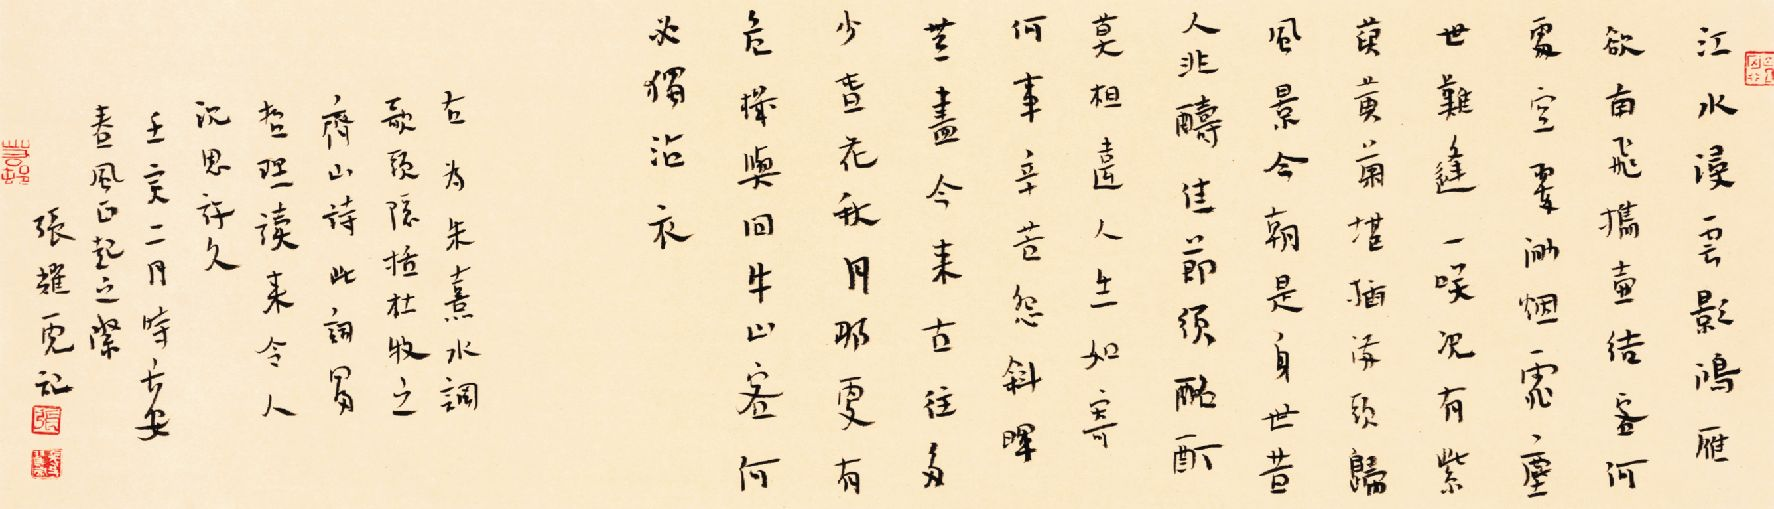 江水浸雲影鴻雁
欲南飛攜壺結客何
處空翠渺烟霏塵
世難逢一咲況有紫
萸黄菊堪插滿頭歸
風景今朝是身世昔
人非醻佳節須酩酊
莫相違人生如寄
何事辛苦怨斜暉
無盡今來古往多
少春花秋月那更有
危機與回牛山客何
必獨沾衣
右為朱熹水調
歌頭隱括杜牧之
齊山詩此詞富
哲理讀來令人
沉思許久
壬寅二月時長安
春風正起之際
張耀記